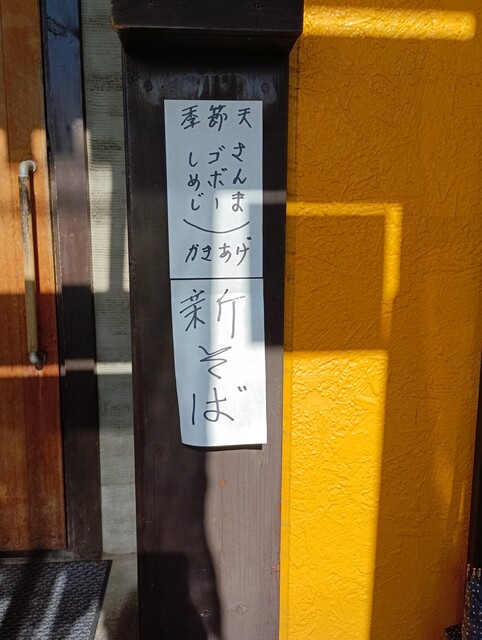 季節天
さんま
ゴボー
しめじ
かきあげ
新そば